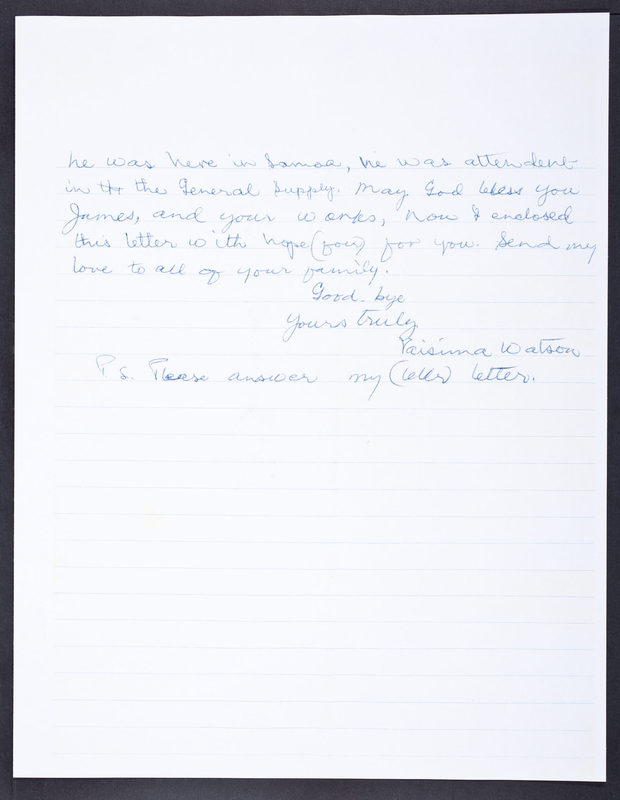 he was here in Samoa, he was attendent
in the the General Supply. May God bless you
James, and your works, Now I enclosed
this letter with hope (for) for you. Send my
love to all of your family.
Good-bye
Yours truly
Paisima Watson
P.S. Please answer my (letter) letter.